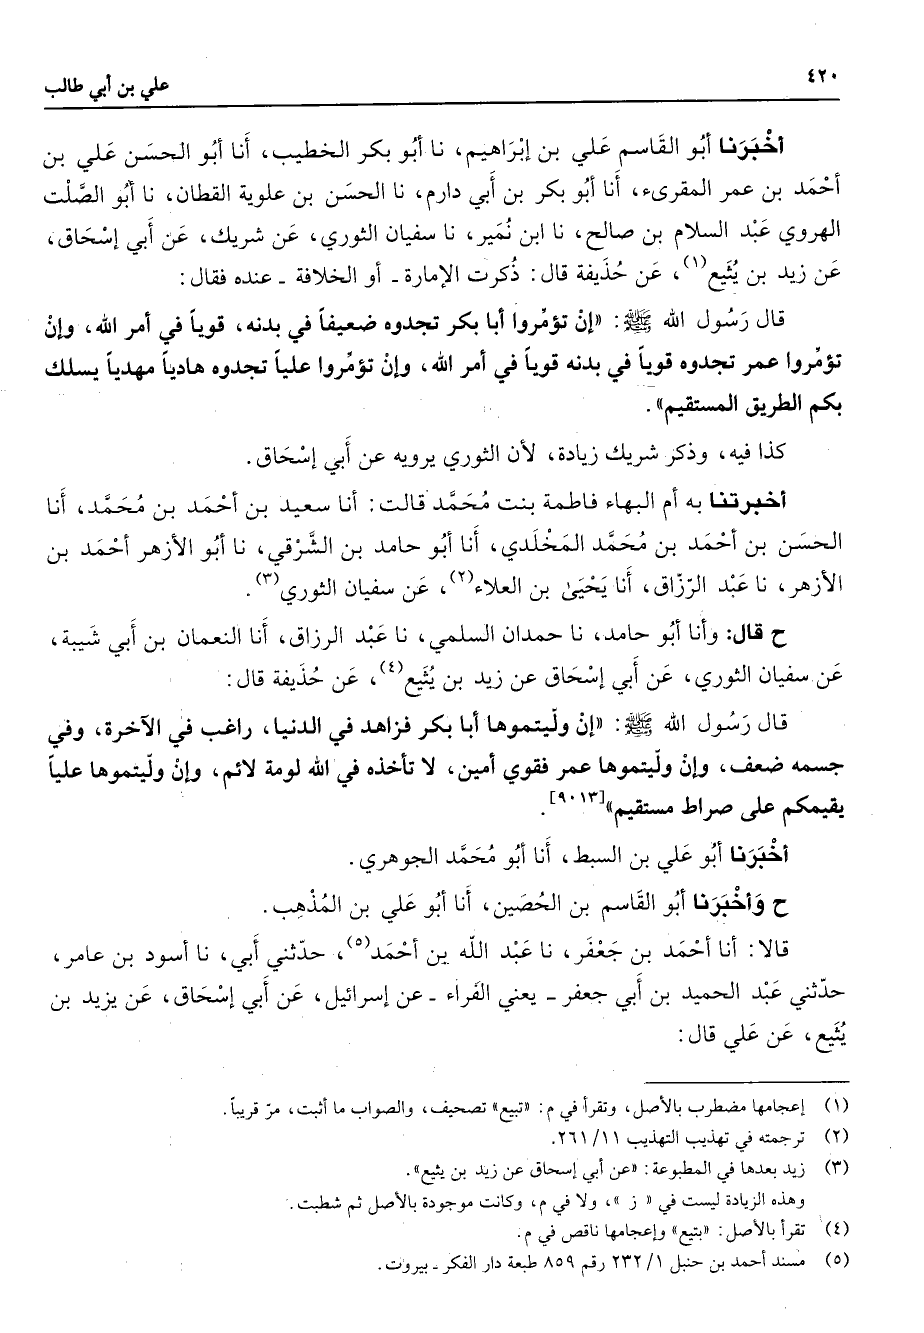 ٤٢٠
علي بن أبي طالب
أخْبَرَنا أبُو القَاسم عَلي بن إبْرَاهيم، نا أبُو بكر الخطيب، أَنا أبُو الحسَن عَلي بن
أحْمَد بن عمر المقرىء، أَنا أبُو بكر بن أبي دارم، نا الحسَن بن علوية القطان، نا أَبُو الصَّلْت
الهروي عَبْد السلام بن صالح، نا ابن نُمَير، نا سفيان الثوري، عَن شريك، عَن أَبي إسْحَاق،
عَن زيد بن يُثَيع(١)، عَن حُذَيفة قال: ذُكرت الإمارة ـ أو الخلافة ـ عنده فقال:
قال رَسُول الله ﷺ: «إنْ تؤمّروا أبا بكر تجدوه ضعيفاً في بدنه، قوياً في أمر الله، وإن
تؤمّروا عمر تجدوه قوياً في بدنه قوياً في أمر الله، وإنْ تؤمّروا علياً تجدوه هادياً مهدياً يسلك
بكم الطريق المستقيم».
كذا فيه، وذكر شريك زيادة، لأن الثوري يرويه عن أَبي إسْحَاق.
أخبرتنا به أم البهاء فاطمة بنت مُحَمَّد قالت: أنا سعيد بن أحْمَد بن مُحَمَّد، أَنا
الحسَن بن أَحْمَد بن مُحَمَّد المَخْلَدي، أَنا أبُو حامد بن الشَّرْقي، نا أبُو الأزهر أحْمَد بن
الأزهر، نا عَبْد الرّزّاق، أَنا يَحْيَىٰ بن العلاء(٢)، عَن سفيان الثوري(٣).
ح قال: وأنا أبُو حامد، نا حمدان السلمي، نا عَبْد الرزاق، أَنا النعمان بن أَبي شَيبة،
عَن سفيان الثوري، عَن أَبي إسْحَاق عن زيد بن يُثَيع(٤)، عَن حُذَيفة قال:
قال رَسُول الله ﷺ: «إن ولّيتموها أبا بكر فزاهد في الدنيا، راغب في الآخرة، وفي
جسمه ضعف، وإنْ ولّيتموها عمر فقوي أمين، لا تأخذه في الله لومة لائم، وإنْ ولّيتموها علياً
يقيمكم على صراط مستقيم»[٩٠١٣].
أخْبَرَنا أبُو عَلي بن السبط، أَنا أبُو مُحَمَّد الجوهري.
ح وَأخْبَرَنا أبُو القَاسم بن الحُصَين، أَنا أبُو عَلي بن المُذْهِب.
قالا: أنا أحْمَد بن جَعْفَر، نا عَبْد اللّه بن أحْمَد(٥)، حدّثني أَبي، نا أسود بن عامر،
حدّثني عَبْد الحميد بن أَبي جعفر ـ يعني الفَراء ـ عن إسرائيل، عَن أَبي إسْحَاق، عَن يزيد بن
يُثَيع، عَن عَلي قال:
(١) إعجامها مضطرب بالأصل، وتقرأ في م: «تبيع» تصحيف، والصواب ما أثبت، مرّ قريباً.
(٢) ترجمته في تهذيب التهذيب ١١/ ٢٦١.
(٣) زيد بعدها في المطبوعة: «عن أبي إسحاق عن زيد بن يثيع».
وهذه الزيادة ليست في « ز »، ولا في م، وكانت موجودة بالأصل ثم شطبت.
(٤) تقرأ بالأصل: «يتيع» وإعجامها ناقص في م.
(٥) مسند أحمد بن حنبل ١/ ٢٣٢ رقم ٨٥٩ طبعة دار الفكر ـ بيروت.